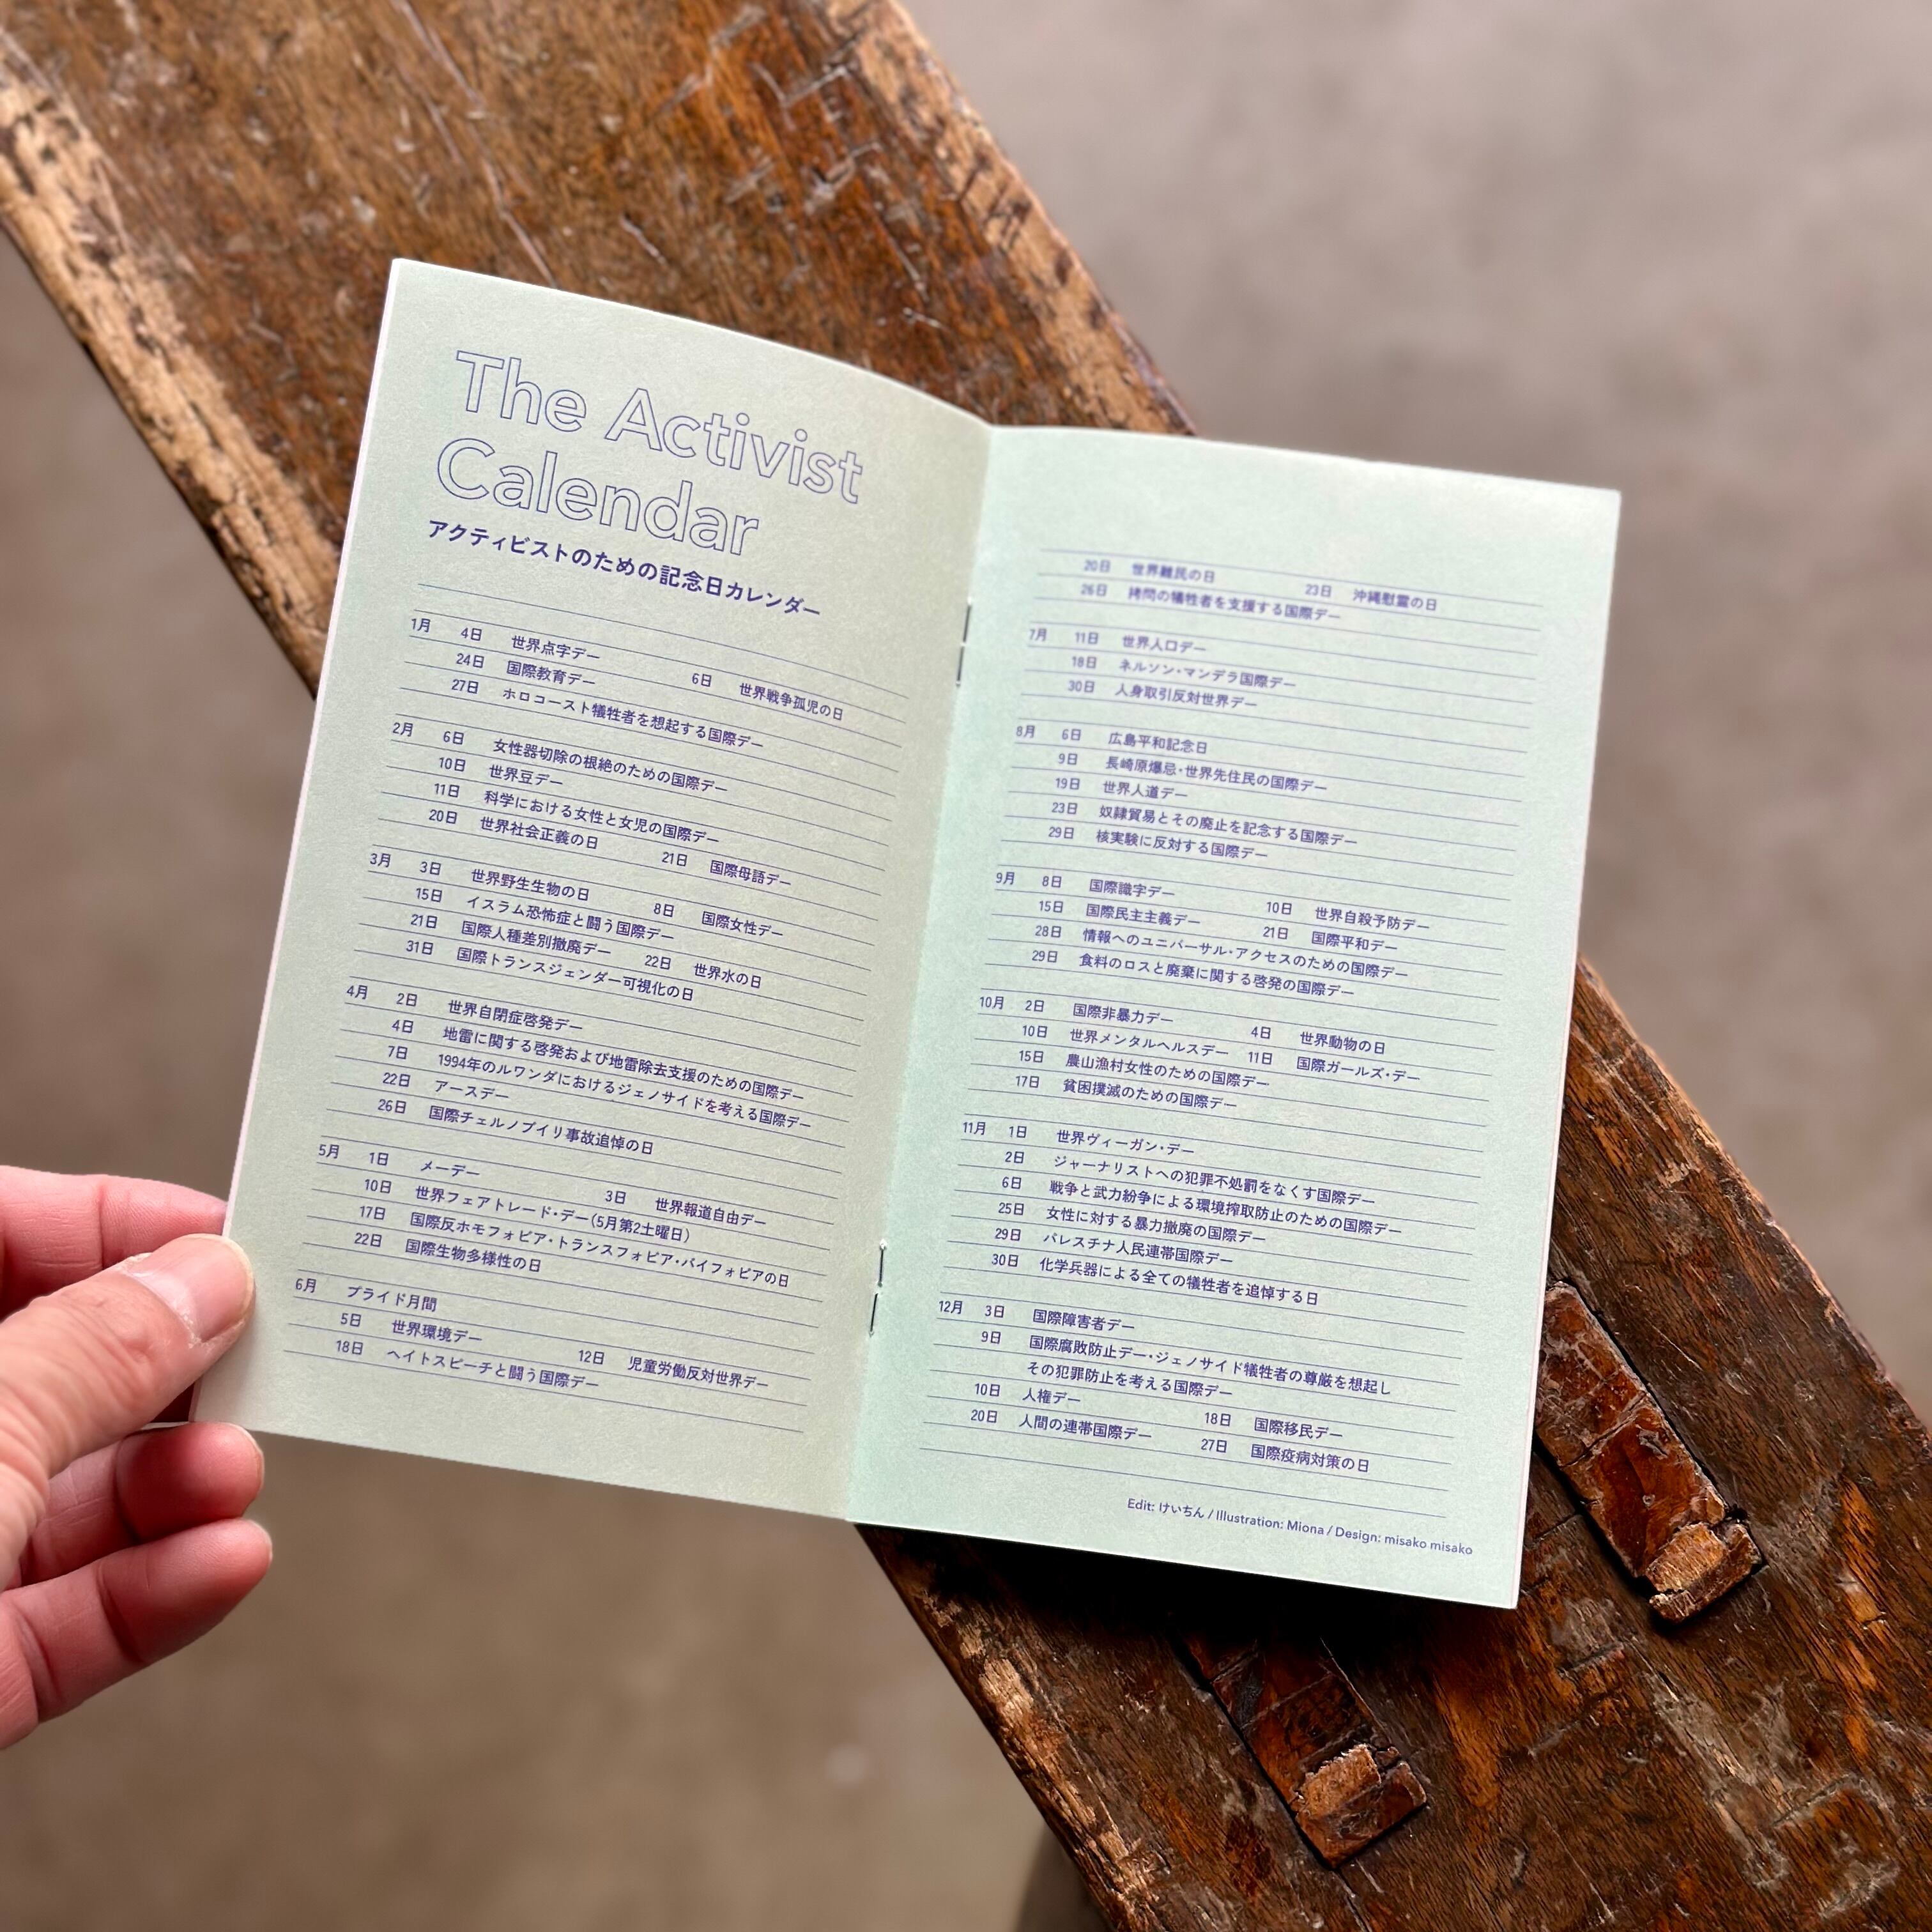 The Activist
Calendar
アクティビストのための記念日カレンダー
1月 4日 世界点字デー 6日 世界戦争孤児の日
24日 国際教育デー
27日 ホロコースト犠牲者を想起する国際デー
2月 6日 女性器切除の根絶のための国際デー
10日 世界豆デー
11日 科学における女性と女児の国際デー
20日 世界社会正義の日 21日 国際母語デー
3月 3日 世界野生生物の日 8日 国際女性デー
15日 イスラム恐怖症と闘う国際デー
21日 国際人種差別撤廃デー 22日 世界水の日
31日 国際トランスジェンダー可視化の日
4月 2日 世界自閉症啓発デー
4日 地雷に関する啓発および地雷除去支援のための国際デー
7日 1994年のルワンダにおけるジェノサイドを考える国際デー
22日 アースデー
26日 国際チェルノブイリ事故追悼の日
5月 1日 メーデー 3日 世界報道自由デー
10日 世界フェアトレード・デー(5月第2土曜日)
17日 国際反ホモフォビア・トランスフォビア・バイフォビアの日
22日 国際生物多様性の日
6月 プライド月間
5日 世界環境デー 12日 児童労働反対世界デー
18日 ヘイトスピーチと闘う国際デー
20日 世界難民の日 23日 沖縄慰霊の日
26日 拷問の犠牲者を支援する国際デー
7月 11日 世界人口デー
18日 ネルソン・マンデラ国際デー
30日 人身取引反対世界デー
8月 6日 広島平和記念日
9日 長崎原爆忌・世界先住民の国際デー
19日 世界人道デー
23日 奴隷貿易とその廃止を記念する国際デー
29日 核実験に反対する国際デー
9月 8日 国際識字デー 10日 世界自殺予防デー
15日 国際民主主義デー 21日 国際平和デー
28日 情報へのユニバーサル・アクセスのための国際デー
29日 食料のロスと廃棄に関する啓発の国際デー
10月 2日 国際非暴力デー 4日 世界動物の日
10日 世界メンタルヘルスデー 11日 国際ガールズ・デー
15日 農山漁村女性のための国際デー
17日 貧困撲滅のための国際デー
11月 1日 世界ヴィーガン・デー
2日 ジャーナリストへの犯罪不処罰をなくす国際デー
6日 戦争と武力紛争による環境搾取防止のための国際デー
25日 女性に対する暴力撤廃の国際デー
29日 パレスチナ人民連帯国際デー
30日 化学兵器による全ての犠牲者を追悼する日
12月 3日 国際障害者デー
9日 国際腐敗防止デー・ジェノサイド犠牲者の尊厳を想起し
その犯罪防止を考える国際デー
10日 人権デー 18日 国際移民デー
20日 人間の連帯国際デー 27日 国際疫病対策の日
Edit: けいちん / Illustration: Miona / Design: misako misako